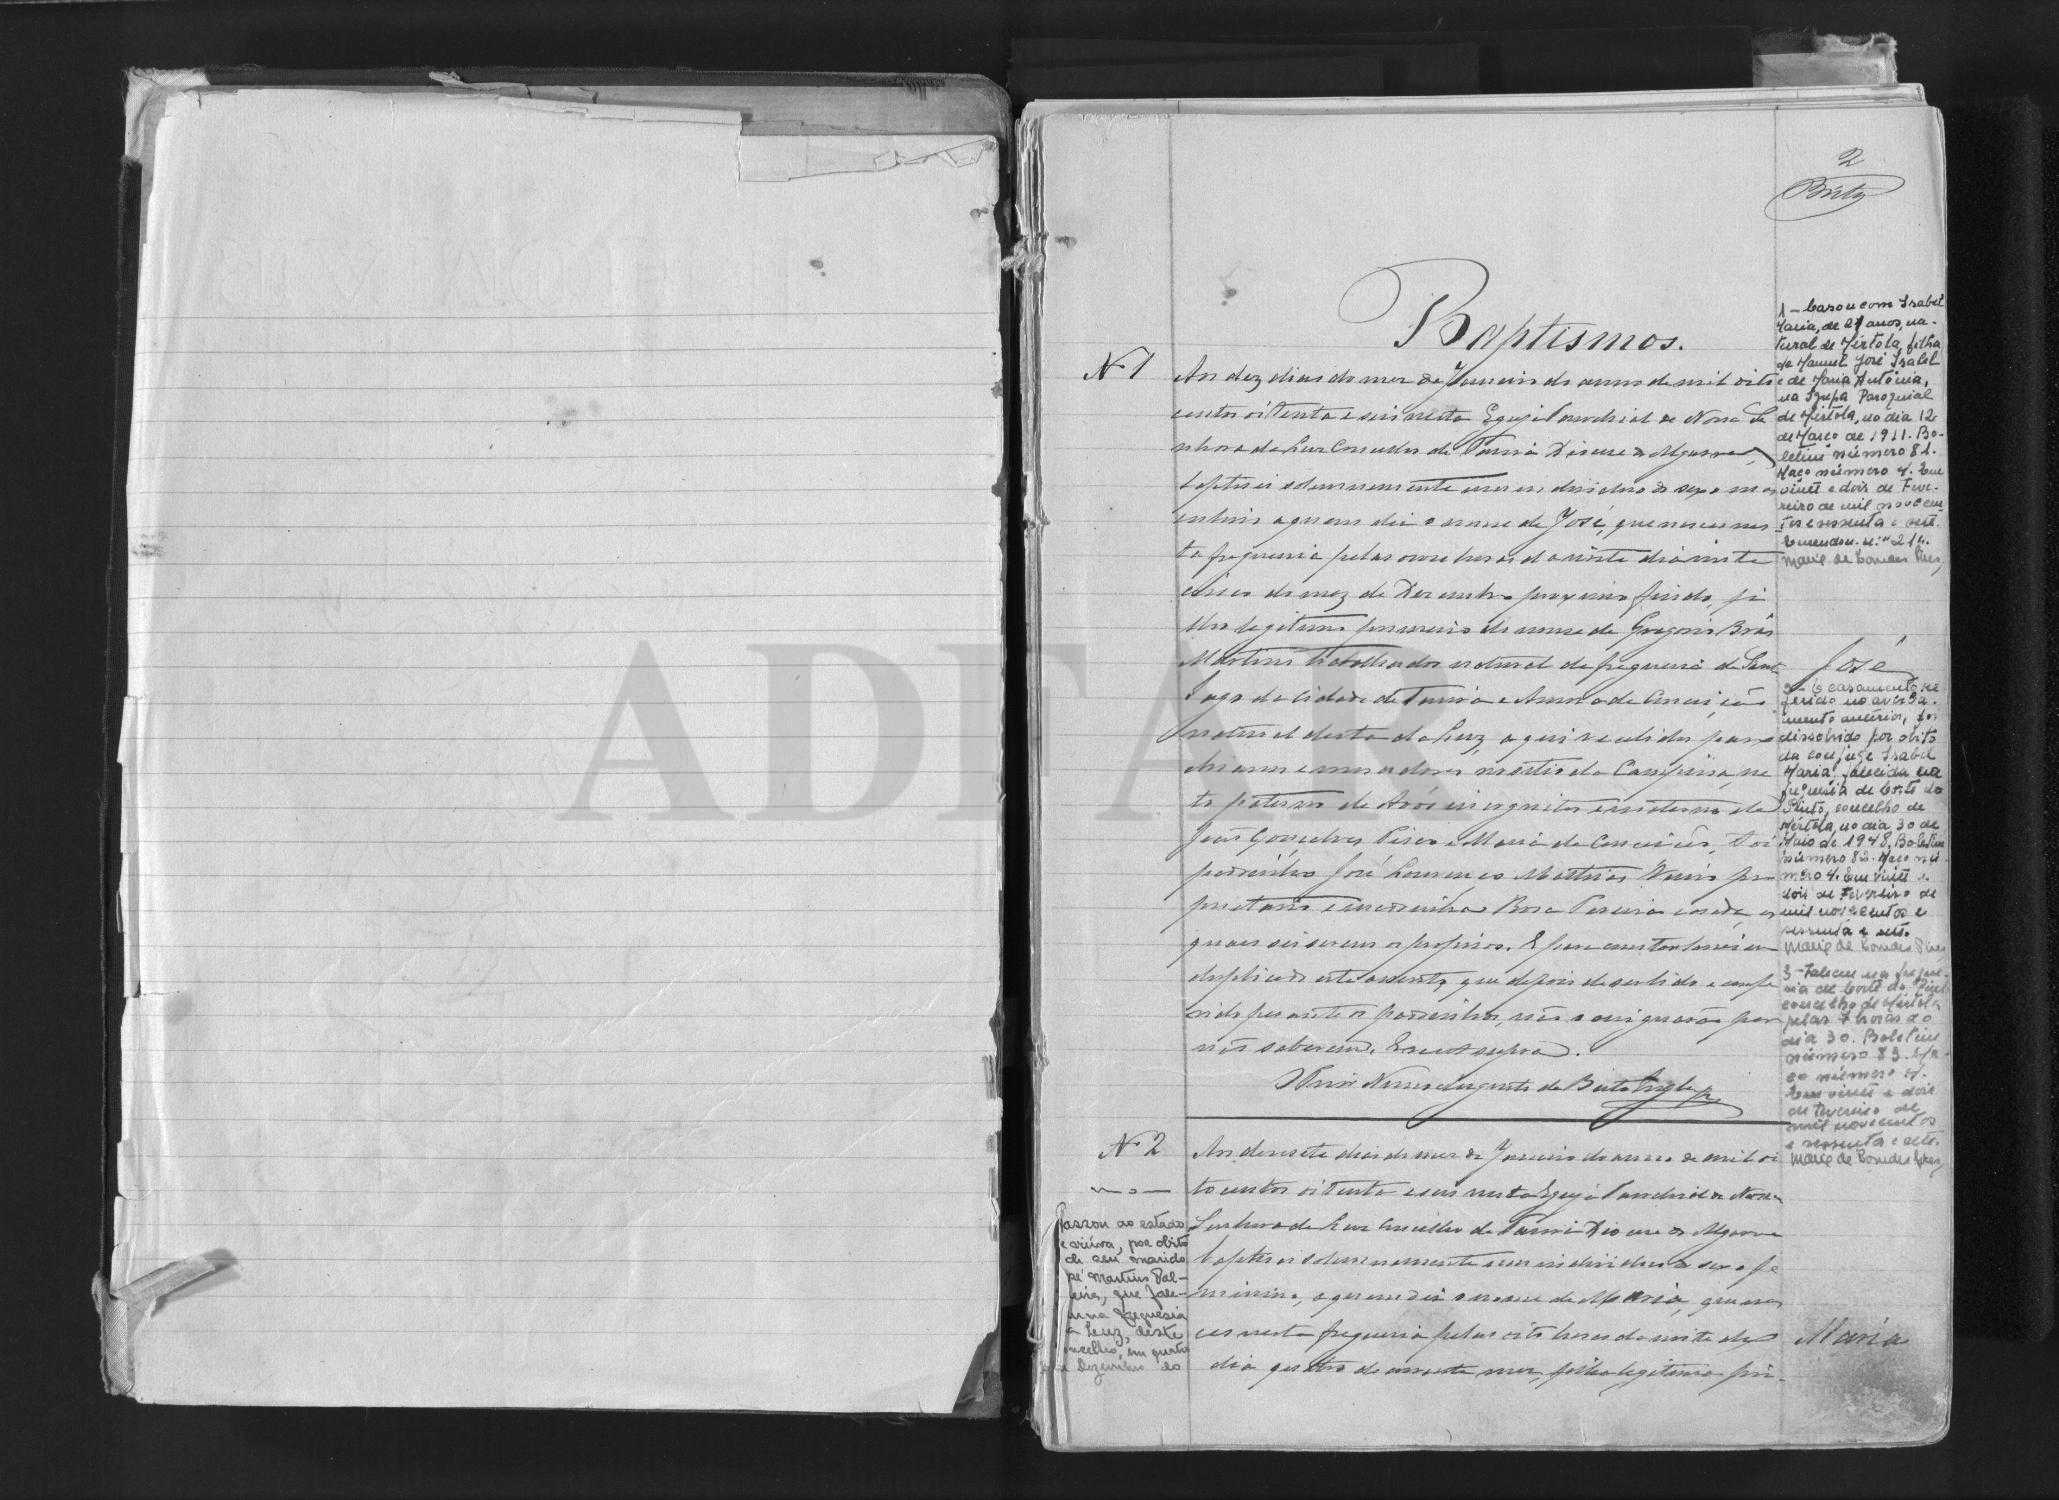 2
Brito
Baptismos.
Nº 1
Aos dez dias do mez de Janeiro do anno de mil oito
centos oitenta e seis nesta Egreja Parochial de Nossa Se
nhora da Luz Concelho de Tavira Diocese do Algarve,
baptisei solemnemente um individuo do sexo mas
culino a quem dei o nome de José, que nasceu nes
ta freguesia pelas onze horas da noite dia vinte
cinco do mez de Dezembro proximo findo, fi
lho legitimo primeiro do nome de Gregorio Brás
Martins trabalhador natural da freguesia de Sant
Iago da Cidade de Tavira e Anna da Conceição
natural desta da Luz aqui recebidos paro
chianos e moradores no sitio da Campina, ne
to paterno de Avós incognitos e materno de
João Gonçalves Pires e Maria da Conceição, Foi
padrinho José Lourenço Mathias Viuvo pro
prietario e madrinha Rosa Pereira casada, os
quaes sei serem os proprios. E para constar lavrei em
duplicado este assento, que depois de ser lido e confe
rido perante os padrinhos, não assignarão por
não saberem. Era ut supra.
O Prior Nuno Augusto de Brito
1 - Casou com Isabel
Maria, de 21 anos, na-
tural de Mértola, filha
de Manuel José Isabel
e de Maria Antónia,
na Igreja Paroquial
de Mértola, no dia 12
de Março de 1911. Bo-
letim número 82.
Maço número 4. Em
vinte e dois de Feve-
reiro de mil novecen-
tos e sessenta e oito.
Emendou-se: "21".
Maria de Lourdes Pires
José
2 - O casamento re
ferido no averba-
mento anterior, foi
dissolvido por óbito
da conjuge Isabel
Maria, falecida na
freguesia de Corte do
Pinto, concelho de
Mértola, no dia 30 de
Maio de 1948. Boletim
número 82. Maço nú-
mero 4. Em vinte e
dois de Fevereiro de
mil novecentos e
sessenta e oito.
Maria de Lourdes Pires
3 - Faleceu na fregue-
sia de Corte do Pinto
concelho de Mértola
pelas 7 horas do
dia 30. Boletim
número 83. Ma-
ço número 4.
Em vinte e dois
de Fevereiro de
mil novecentos
e sessenta e oito.
Maria de Lourdes Pires
Nº 2
Aos dezasete dias do mez de Janeiro do anno de mil oi
to centos oitenta e seis nesta Egreja Parochial de Nossa
Senhora da Luz Concelho de Tavira Diocese do Algarve
baptisei solemnemente um individuo do sexo fe
minino, a quem dei o nome de Maria, que nas
ceu nesta freguesia pelas oito horas da noite do
dia quatro do corrente mez, filha legitima pri-
Maria
Passou ao estado
e viúva, por óbito
de seu marido
sé Martins Pal-
meira, que fale-
u na freguesia
a Luz, deste
oncelho, em quatro
e Dezembro do
ADFAR